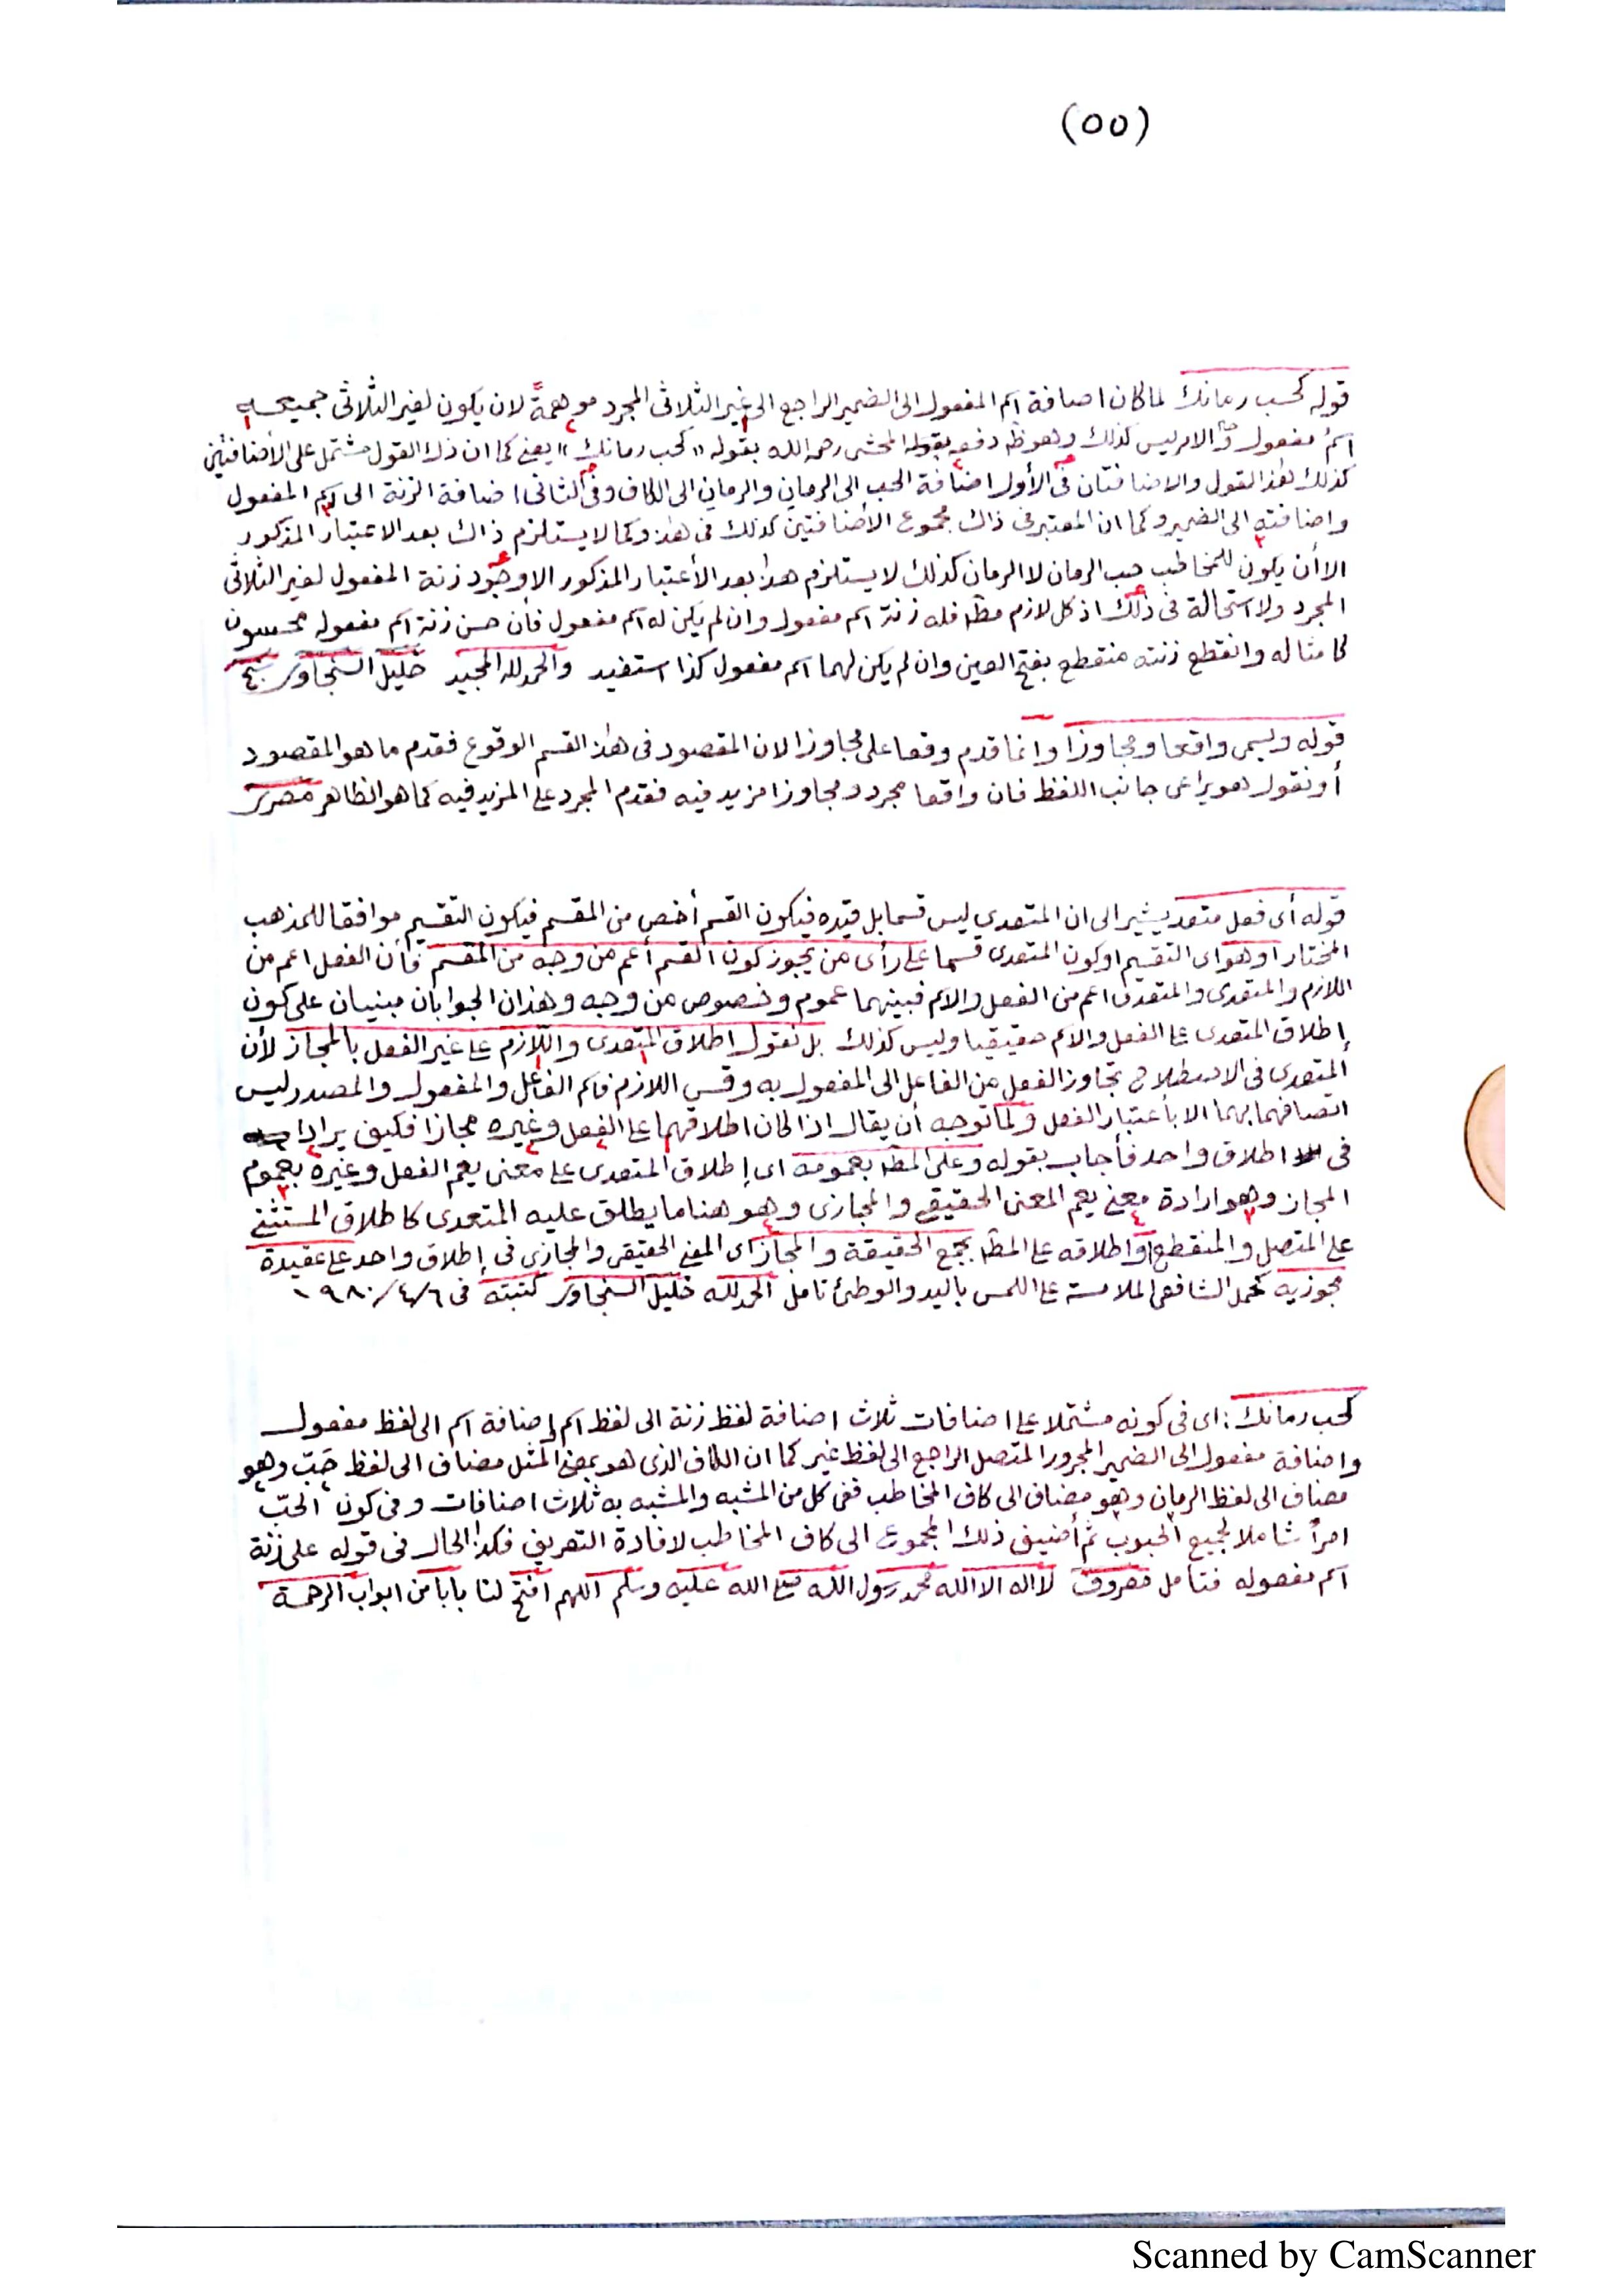 (٥٥)
قوله كحب رمانك لما كان اضافة اسم المفعول الى الضمير الراجع الى غير الثلاثى المجرد موهمةً لان يكون لغير الثلاثى جميعه
اسمُ مفعول والامر ليس كذلك وهو ظ دفعه المحشى رحمه الله بقوله «كحب رمانك» يعنى كما ان ذلك القول مشتمل على الأضافتين
كذلك هذا القول والاضافتان فى الأول اضافة الحب الى الرمان والرمان الى الكاف وفى الثانى اضافة الزنة الى اسم المفعول
واضافته الى الضمير وكما ان المعتبر فى ذاك مجموع الأضافتين كذلك فى هذا وكما لا يستلزم ذاك بعد الاعتبار المذكور
الا أن يكون للمخاطب حب الرمان لا الرمان كذلك لا يستلزم هذا بعد الأعتبار المذكور الا وجود زنة المفعول لغير الثلاثى
المجرد ولا استحالة فى ذلك اذ كل لازم مطا فله زنة اسم مفعول وان لم يكن له اسم مفعول فأن حسن زنة اسم مفعوله محسون
كا مثاله وانقطع زنته منقطع بفتح العين وان لم يكن لهما اسم مفعول كذا استفيد والحمد لله المجيد خليل السنجاوى
قوله ويسمى واقعا ومجاوزا وانما قدم وقعا على مجاوزا لان المقصود فى هذا القسم الوقوع فقدم ما هو المقصود
أو نقول هو يراعى جانب اللفظ فان واقعا مجرد ومجاوزا مزيد فيه فقدم المجرد على المزيد فيه كما هو الظاهر
قوله أى فعل متعد يشير الى ان المتعدى ليس قسما بل قيده فيكون القسم أخص من المقسم فيكون التقسيم موافقا للمذهب
المختار او هو اى التقسيم اوكون المتعدى قسما على رأى من يجوز كون القسم أعم من وجه من المقسم فأن الفعل اعم من
اللازم والمتعدى والمتعدى اعم من الفعل والاسم فبينهما عموم وخصوص من وجه وهذان الجوابان مبنيان على كون
إطلاق المتعدى على الفعل والاسم حقيقيا وليس كذلك بل نقول اطلاق المتعدى واللازم على غير الفعل بالمجاز لأن
المتعدى فى الاصطلاح تجاوز الفعل من الفاعل الى المفعول به وقس اللازم فاسم الفاعل والمفعول والمصدر ليس
اتصافهما بهما الا بأعتبار الفعل ولما توجه أن يقال اذا كان اطلاقهما على الفعل وغيره مجازا فكيف يرادا
فى اطلاق واحد فأجاب بقوله وعلى المطا بعمومه اى إطلاق المتعدى على معنى يعم الفعل وغيره بعموم
المجاز وهو ارادة معنى يعم المعنى الحقيقى والمجازى وهو هنا ما يطلق عليه المتعدى كاطلاق المستثنى
على المتصل والمنقطع او اطلاقه على المطا بجمع الحقيقة والمجاز اى المعنى الحقيقى والمجازى فى إطلاق واحد على عقيدة
مجوزيه كحمل الشافعى الملامسة على اللمس باليد والوطئ تامل الحمد لله خليل السنجاوى كتبته فى ١٩٨٠/٤/٦
كحب رمانك : اى فى كونه مشتملا على اضافات ثلاث اضافة لفظ زنة الى لفظ اسم واضافة اسم الى لفظ مفعول
واضافة مفعول الى الضمير المجرور المتصل الراجع الى لفظ غير كما ان الكاف الذى هو بمعنى المثل مضاف الى لفظ حَبّ وهو
مضاف الى لفظ الرمان وهو مضاف الى كاف المخاطب ففى كل من المشبه والمشبه به ثلاث اضافات وفى كون الحبّ
امراً شاملا لجميع الحبوب ثم أضيف ذلك المجموع الى كاف المخاطب لافادة التعريف فكذا الحال فى قوله على زنة
اسم مفعوله فتأمل معروف لا اله الا الله محمد رسول الله صلى الله عليه وسلم اللهم افتح لنا بابا من ابواب الرحمة
Scanned by CamScanner